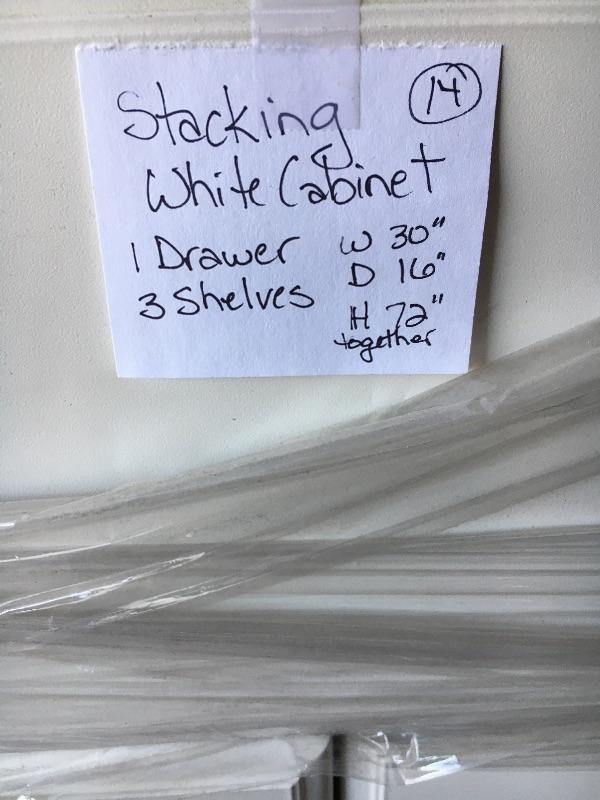 14
Stacking
White Cabinet
1 Drawer W 30"
3 Shelves D 16"
H 72"
together